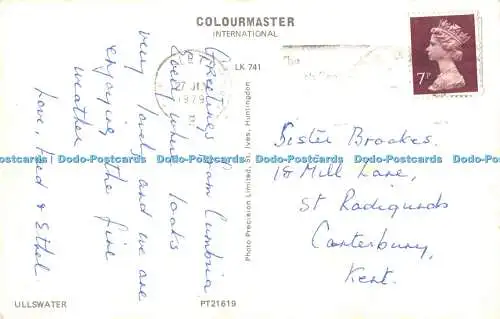 COLOURMASTER
INTERNATIONAL
LK 741
7P
Greetings from Cumbria
Everywhere looks
very lovely and we are
enjoying the fine
weather
Love, Fred & Ethel.
Photo Precision Limited, St. Ives, Huntingdon
Sister Brookes.
18 Mill Lane,
St Radigunds
Canterbury,
Kent.
Dodo-Postcards Dodo-Postcards Dodo-Postcards Dodo-Postcards Dodo-Postcards Dodo-Postcards
ULLSWATER
PT21619